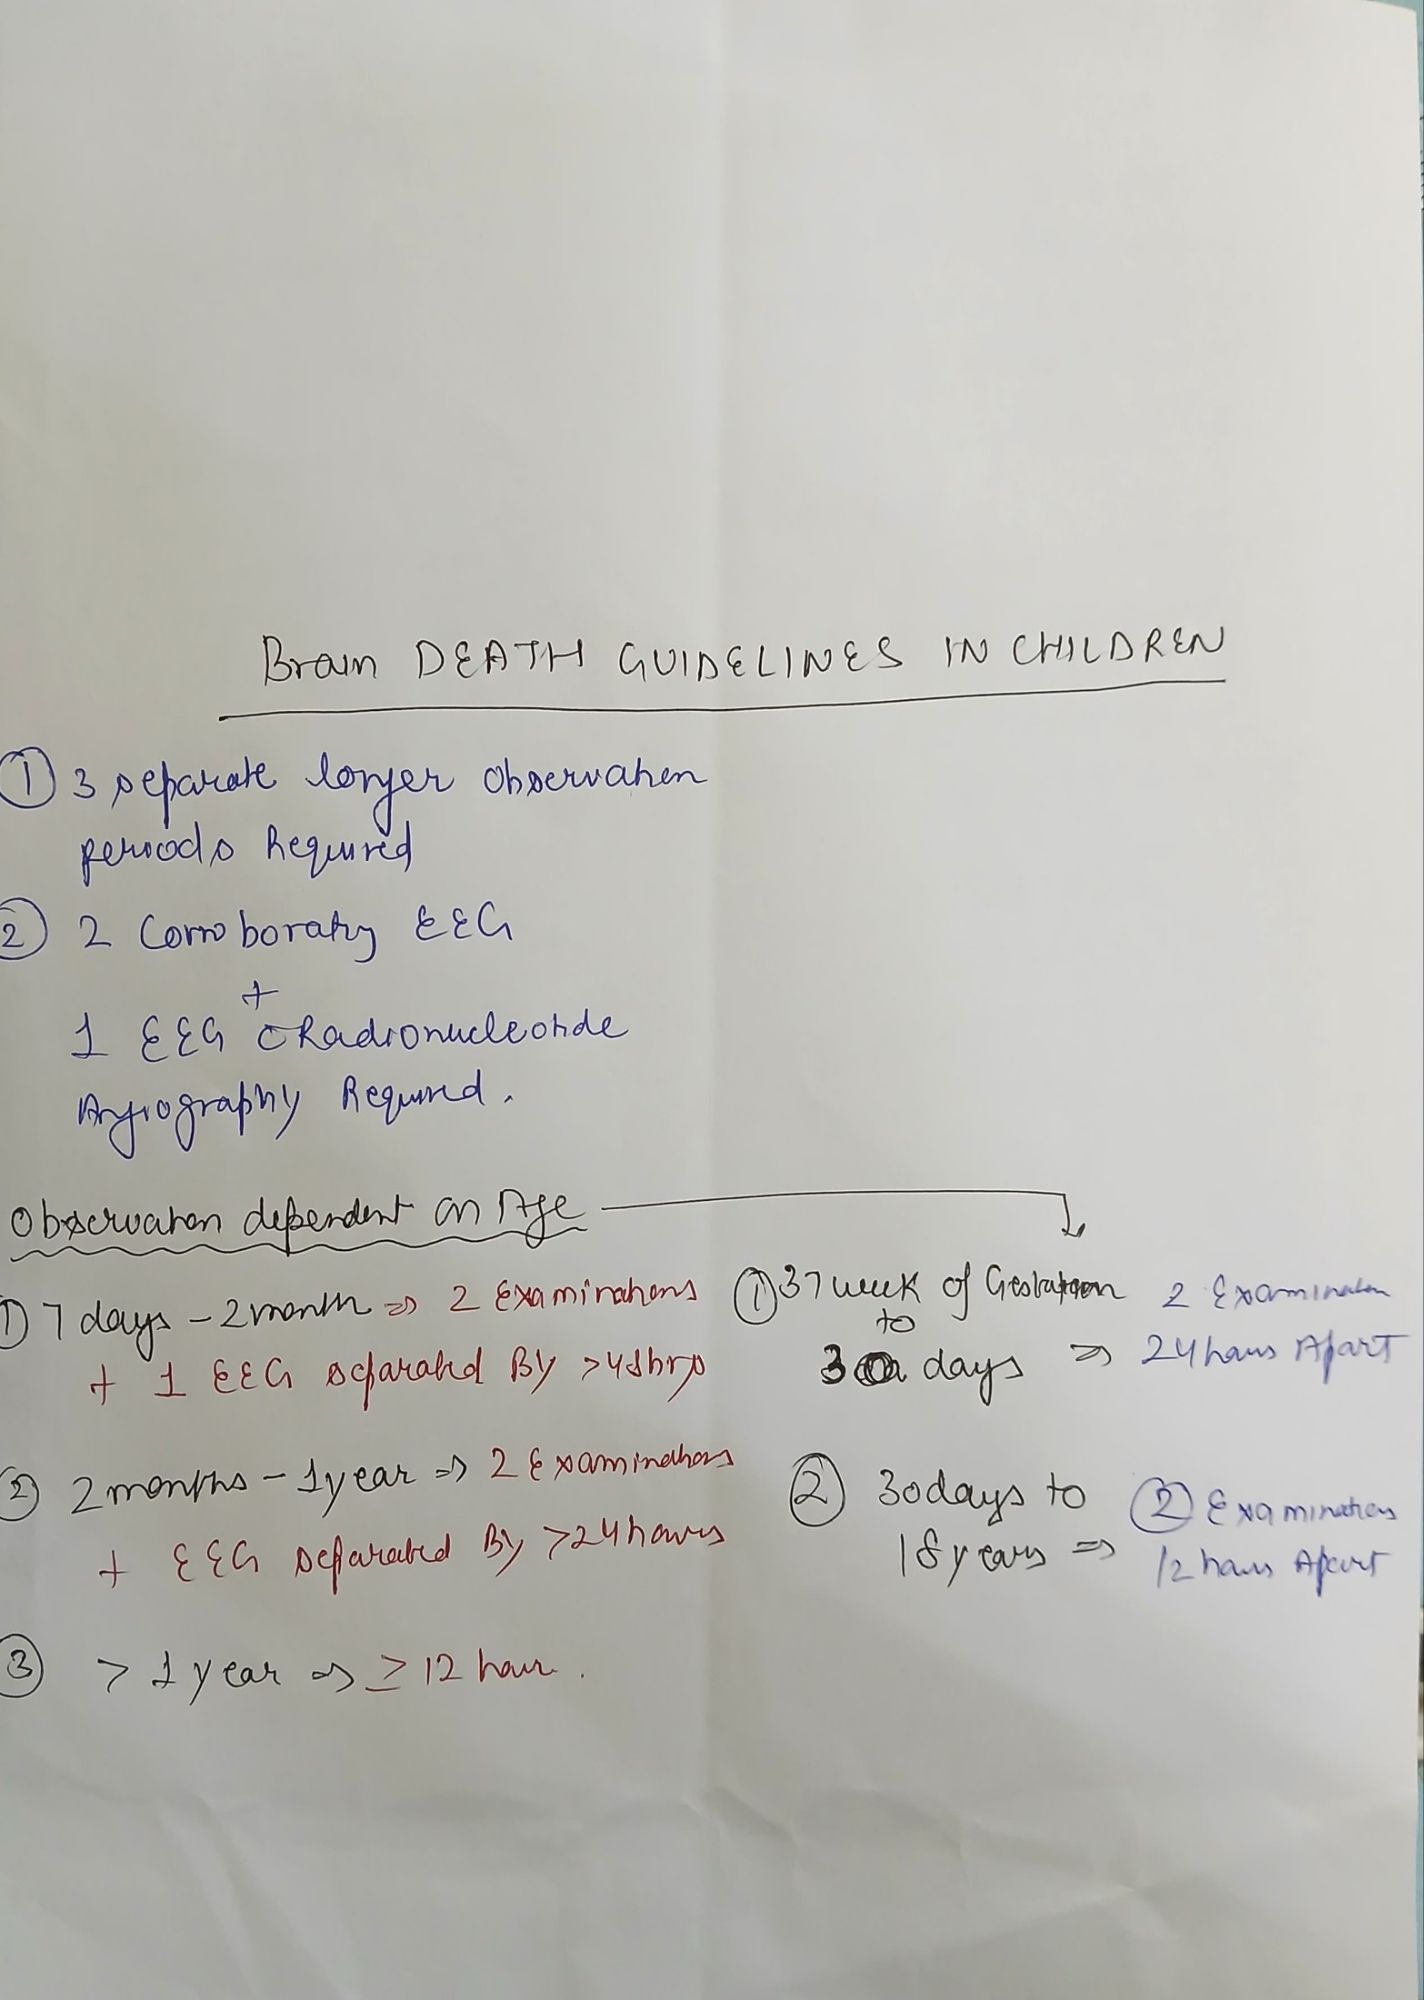 Brain DEATH GUIDELINES IN CHILDREN
① 3 separate longer observation
periods Required
② 2 Corroboratry EEG
+
1 EEG c̄ Radionucleotide
Angiography Required.
Observation dependent on Age
① 7 days - 2 month ⇒ 2 Examinations
+ 1 EEG separated By >48hrs
② 2 months - 1 year ⇒ 2 Examinations
+ EEG separated By >24 hours
③ > 1 year ⇒ ≥ 12 hour.
① 37 week of Gestation
to
30 days ⇒
2 Examination
24 hours Apart
② 30 days to
18 years ⇒
② Examinations
12 hours Apart